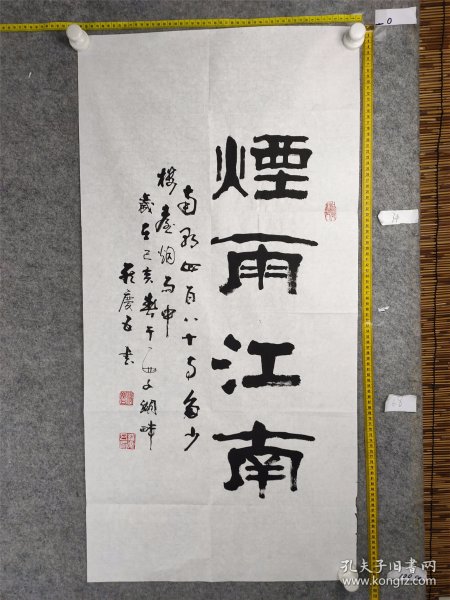 煙雨江南
南朝四百八十寺多少
楼台烟雨中
歲在己亥春于西子湖畔
慶五书
孔夫子旧书网
www.kongfz.com
0